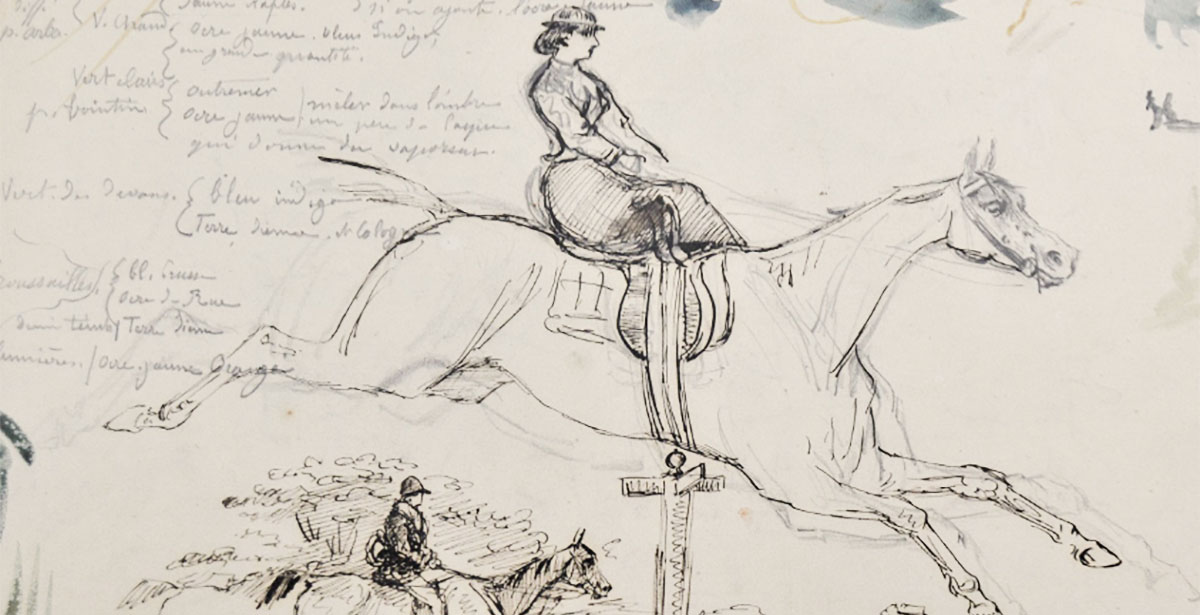 jaune Naples. si on ajoute. l'ocre jaune
p. arbr. V. Grand ocre jaune. bleu Indigo,
en grande quantité.
Vert clair outremer
pr. ocre jaune mêler dans l'ombre
un peu de
qui donne du vaporeux.
Vert. des devans. bleu indigo
Terre Sienne. et Cologne
broussailles. bl. Prusse
ocre de Rue
demi teinte Terre Sienne
lumières. ocre. jaune Orange